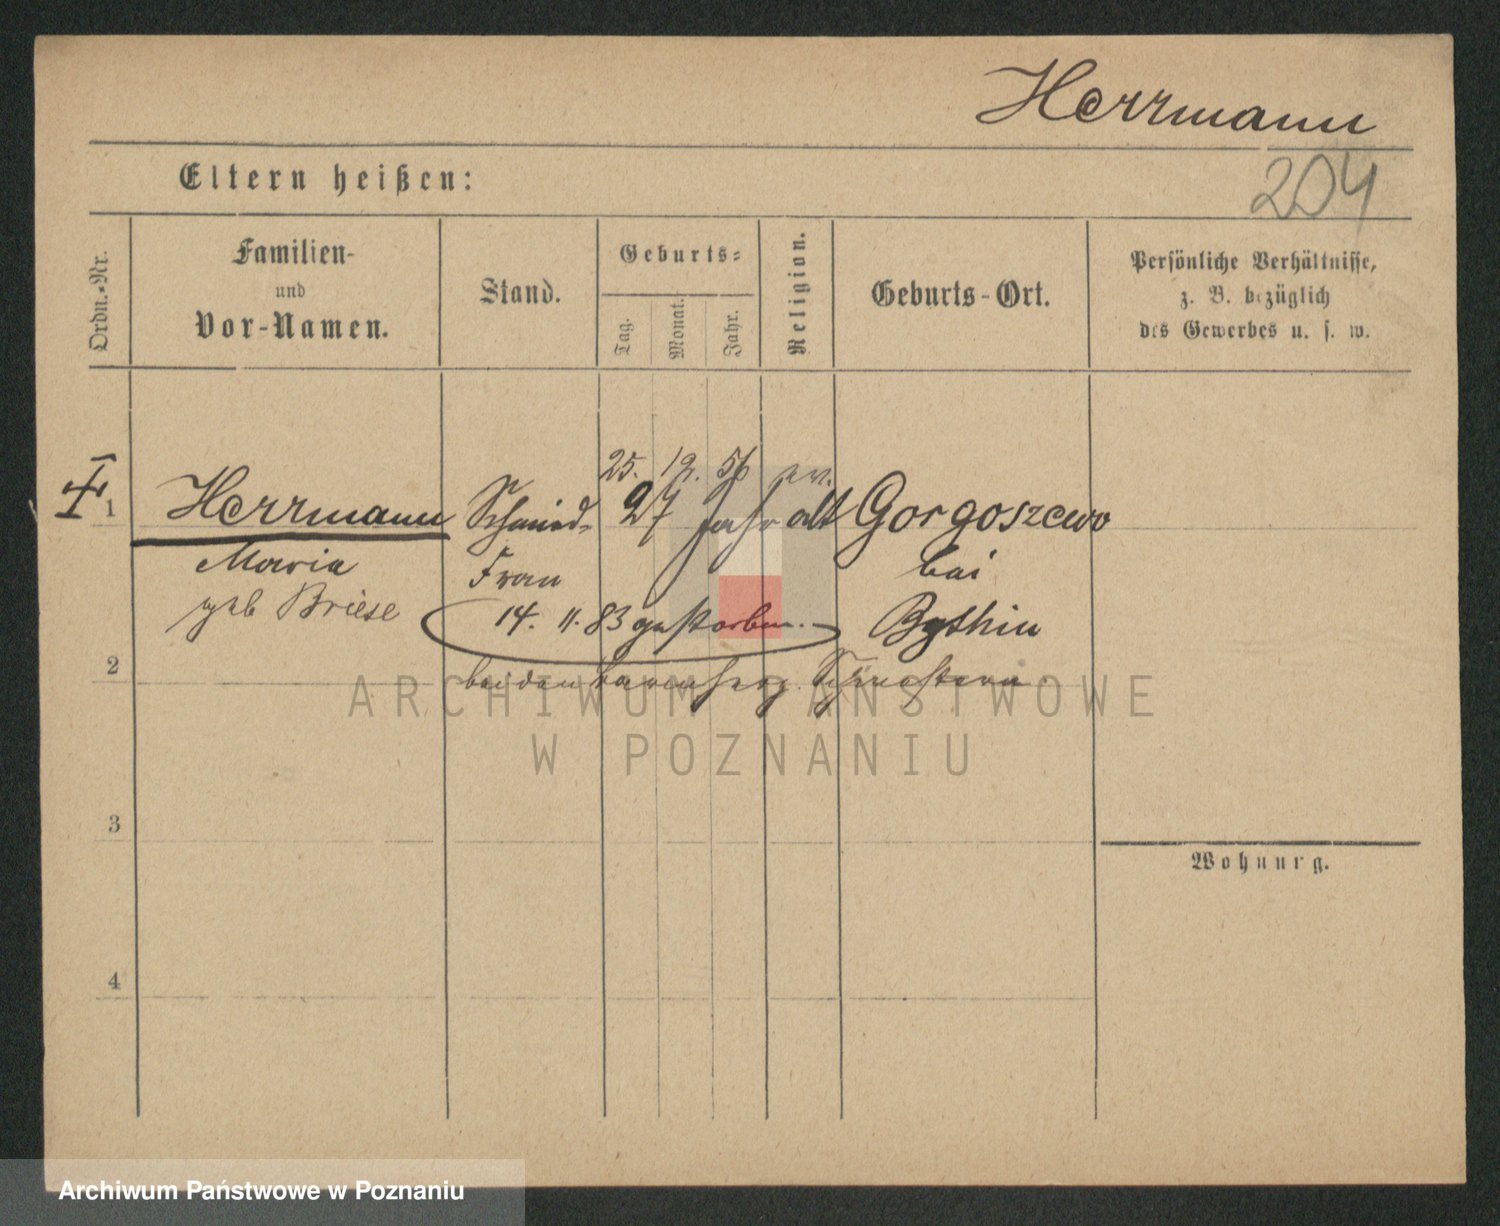 Herrmann
204
Eltern heißen:
Ordn.-Nr.
Familien-
und
Vor-Namen.
Stand.
Geburts-
Tag.
Monat.
Jahr.
Religion.
Geburts-Ort.
Persönliche Verhältnisse,
z. B. bezüglich
des Gewerbes u. s. w.
25. 12. 56 ev.
1 Herrmann Schmied- 27 Jahr alt Gorgoszewo
Maria Frau bei
geb Briese 14. 11. 83 gestorben. Bythin
2 bei den barmherz. Schwestern.
ARCHIWUM PAŃSTWOWE
W POZNANIU
3
Wohnung.
4
Archiwum Państwowe w Poznaniu